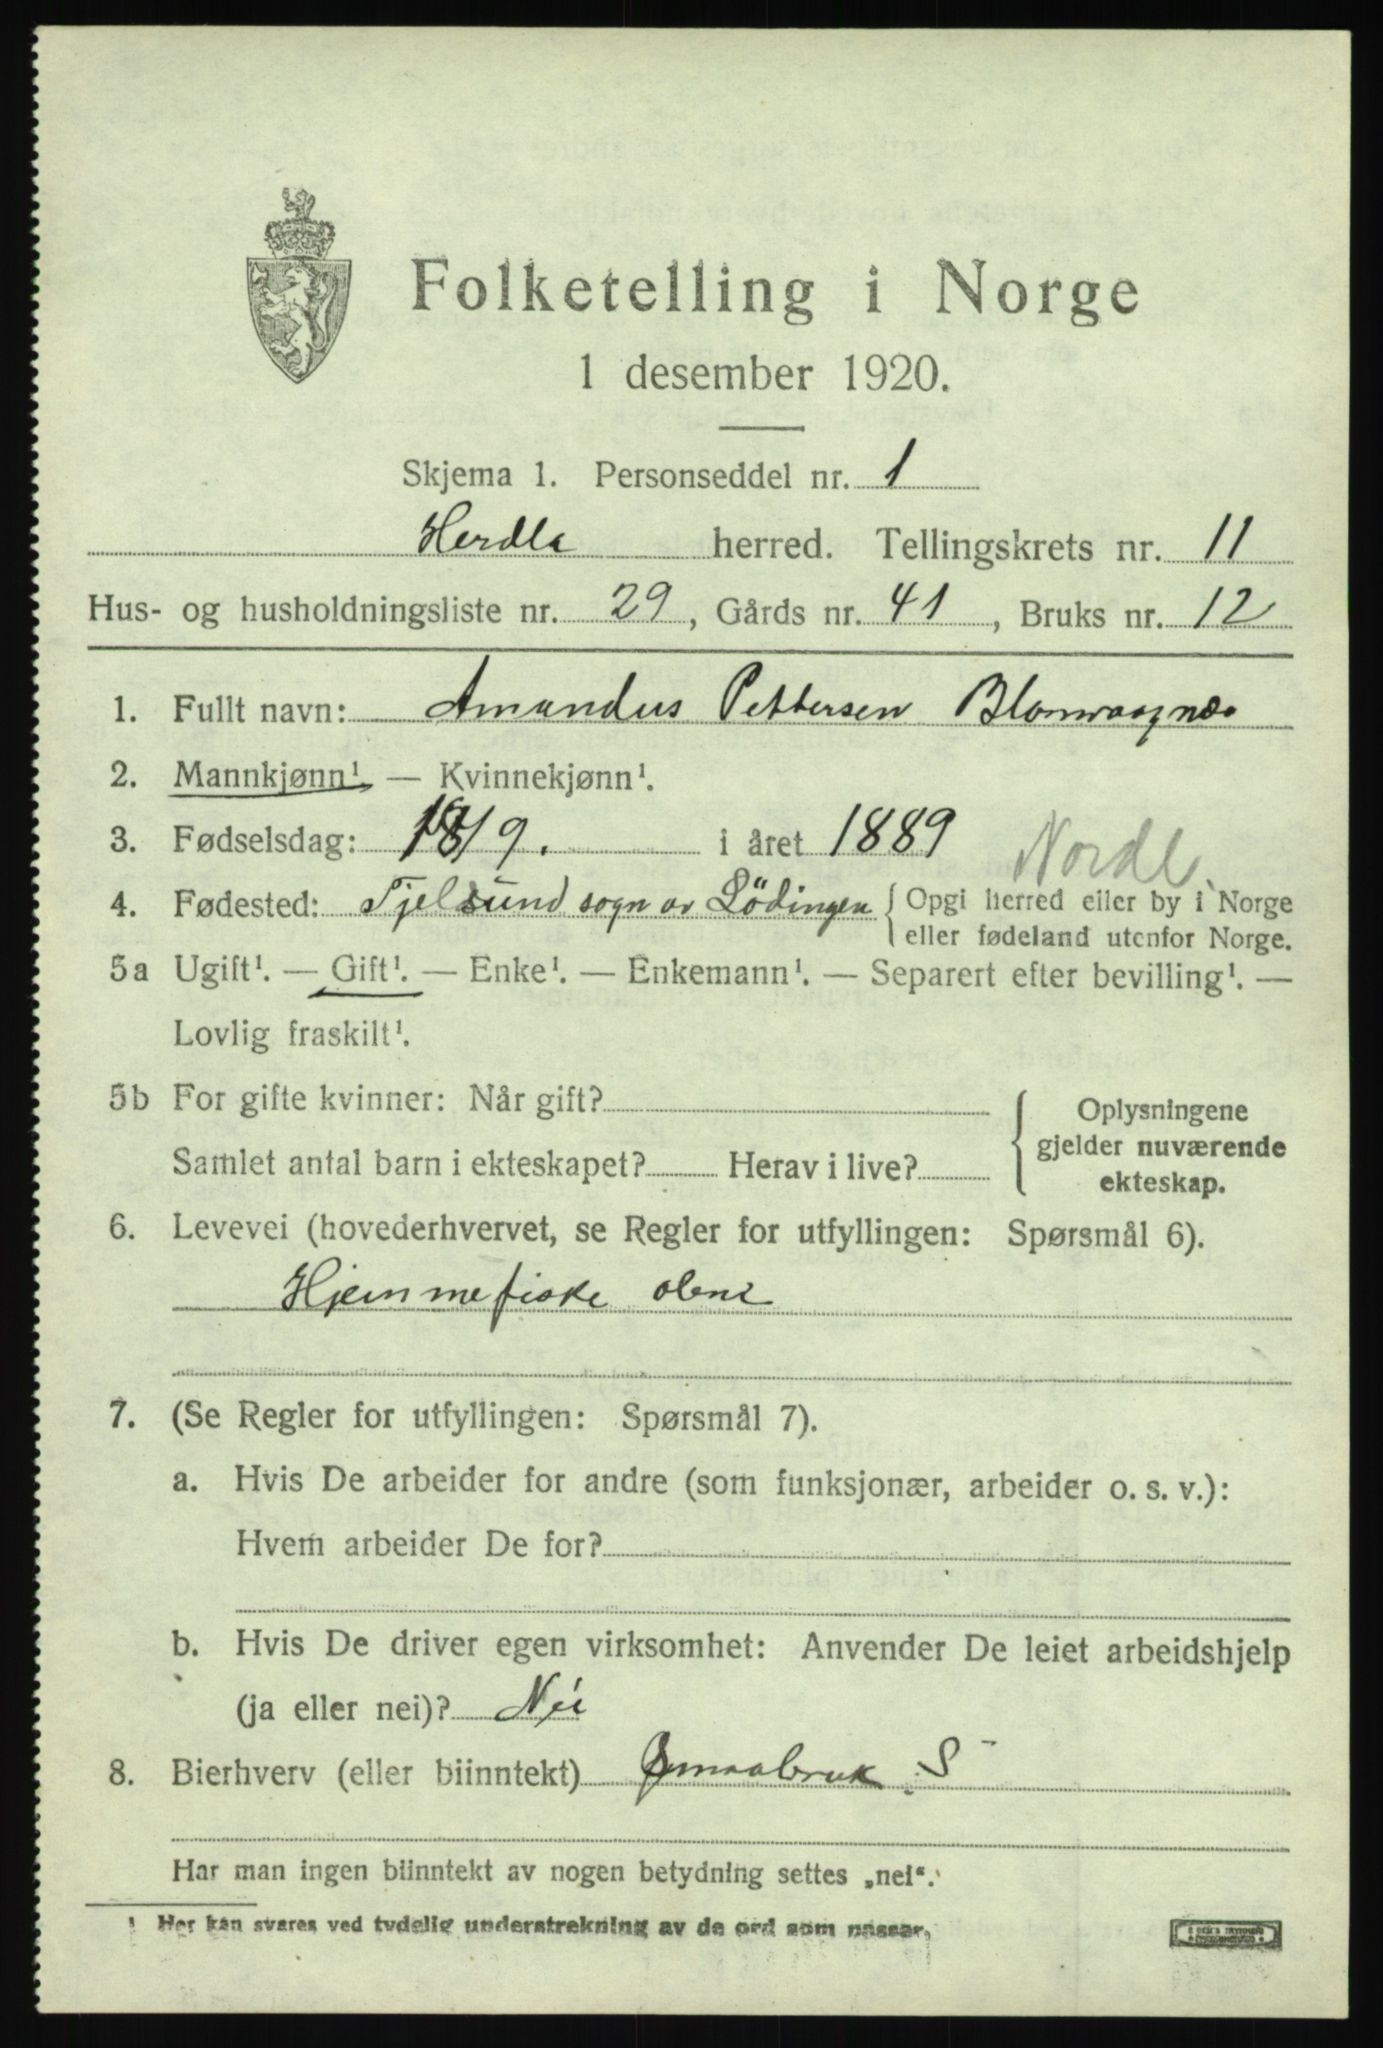 Folketelling i Norge
1 desember 1920.
Skjema 1. Personseddel nr. 1
Herdla herred. Tellingskrets nr. 11
Hus- og husholdningsliste nr. 29, Gårds nr. 41, Bruks nr. 12
1. Fullt navn: Amandus Pettersen Blomvaagnæs
2. Mannkjønn¹. — Kvinnekjønn¹.
3. Fødselsdag: /9. i året 1889 Nordl.
4. Fødested: Tjelsund sogn av Lödingen { Opgi herred eller by i Norge
eller fødeland utenfor Norge.
5a Ugift¹. — Gift¹. — Enke¹. — Enkemann¹. — Separert efter bevilling¹. —
Lovlig fraskilt¹.
5b For gifte kvinner: Når gift?
Samlet antal barn i ekteskapet? Herav i live?
{ Oplysningene
gjelder nuværende
ekteskap.
6. Levevei (hovederhvervet, se Regler for utfyllingen: Spørsmål 6).
Hjemmefiske
7. (Se Regler for utfyllingen: Spørsmål 7).
a. Hvis De arbeider for andre (som funksjonær, arbeider o. s. v.):
Hvem arbeider De for?
b. Hvis De driver egen virksomhet: Anvender De leiet arbeidshjelp
(ja eller nei)? Nei
8. Bierhverv (eller biinntekt) Smaabruk S
Har man ingen biinntekt av nogen betydning settes „nei“.
¹ Her kan svares ved tydelig understrekning av de ord som passer.